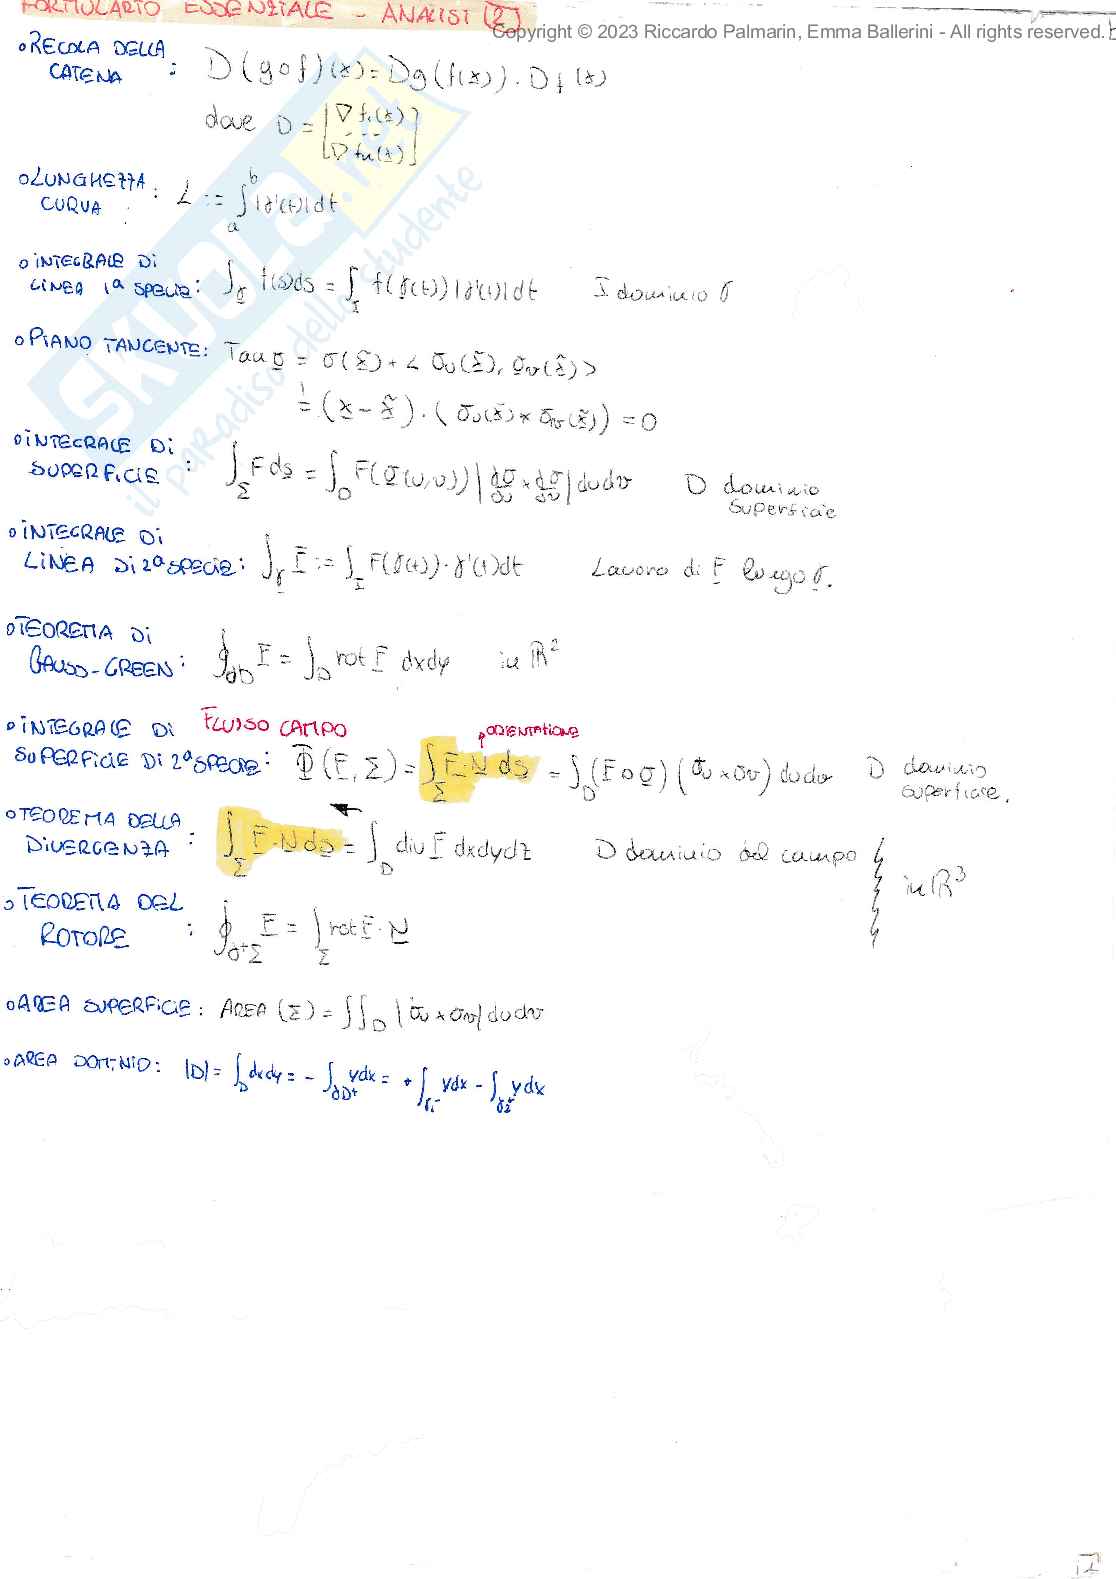 FORMULARIO ESSENZIALE - ANALISI (2)
Copyright © 2023 Riccardo Palmarin, Emma Ballerini - All rights reserved.
REGOLA DELLA CATENA : D(g∘f)(x) = Dg(f(x)) · Df(x)
dove D = [∇f₁(x) --- ∇fₙ(x)]
LUNGHEZZA CURVA : L := ∫ₐᵇ |γ'(t)| dt
INTEGRALE DI LINEA 1ª SPECIE : ∫_γ f(s)ds = ∫_I f(γ(t)) |γ'(t)| dt I dominio γ
PIANO TANGENTE : Tan σ = σ(x̃) + < σu(x̃), σv(x̃) >
= (x - x̃) · (σu(x̃) × σv(x̃)) = 0
INTEGRALE DI SUPERFICIE : ∫_Σ F ds = ∫_D F(σ(u,v)) |dσ/du × dσ/dv| du dv D dominio superficie
INTEGRALE DI LINEA DI 2ª SPECIE : ∫_γ F := ∫_I F(γ(t)) · γ'(t) dt Lavoro di F lungo γ.
TEOREMA DI GAUSS-GREEN : ∮_∂D F = ∫_D rot F dxdy in ℝ²
INTEGRALE DI FLUSSO CAMPO
ORIENTAZIONE
SUPERFICIE DI 2ª SPECIE : Φ(F, Σ) = ∫_Σ F · N ds = ∫_D (F∘σ) (σu × σv) du dv D dominio superficie.
TEOREMA DELLA DIVERGENZA : ∫_Σ F · N ds = ∫_D div F dxdydz D dominio del campo in ℝ³
TEOREMA DEL ROTORE : ∮_∂⁺Σ F = ∫_Σ rot F · N
AREA SUPERFICIE : AREA (Σ) = ∫∫_D |σu × σv| du dv
AREA DOMINIO : |D| = ∫_D dxdy = - ∫_∂D⁺ y dx = + ∫_γ₁⁻ y dx - ∫_γ₂⁺ y dx
SKUOLA.net
il paradiso dello studente